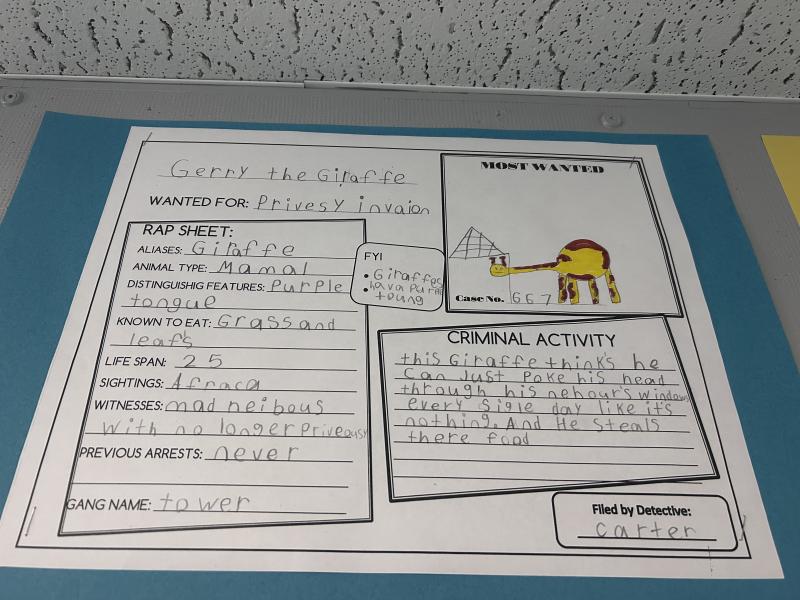 Gerry the Giraffe
WANTED FOR: Privesy invaion
RAP SHEET:
ALIASES: Giraffe
ANIMAL TYPE: Mamal
DISTINGUISHIG FEATURES: Purple
tongue
KNOWN TO EAT: Grass and
leafs
LIFE SPAN: 25
SIGHTINGS: Afraca
WITNESSES: mad neibous
with no longer priveousy
PREVIOUS ARRESTS: never
GANG NAME: tower
FYI
• Giraffes
• hava purple
toung
MOST WANTED
Case No. 667
CRIMINAL ACTIVITY
this Giraffe thinks he
Can Just Poke his head
through his nehour's windows
every sigle day like it's
nothing. And He Steals
there food
Filed by Detective:
carter